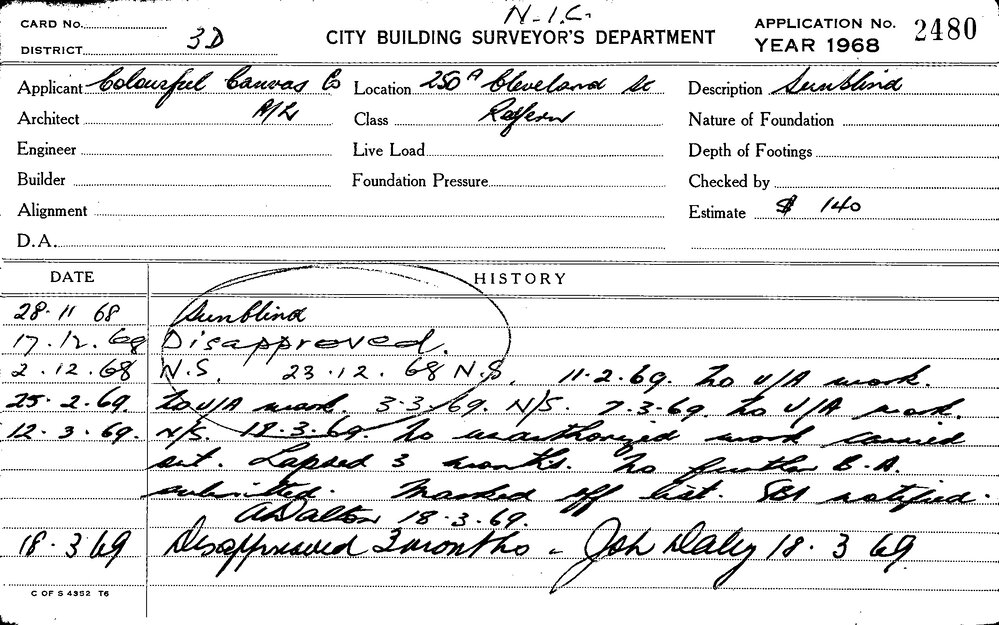 N-I.C.
CARD No.
DISTRICT 3D
CITY BUILDING SURVEYOR'S DEPARTMENT
APPLICATION No. 2480
YEAR 1968
Applicant Colourful Canvas Co Location 250A Cleveland St Description Sunblind
Architect P/L Class Redfern Nature of Foundation
Engineer Live Load Depth of Footings
Builder Foundation Pressure Checked by
Alignment Estimate $ 140
D.A.
DATE HISTORY
28.11 68 Sunblind
17.12.68 Disapproved.
2.12.68 N.S. 23.12.68 N.S. 11.2.69. No U/A work.
25.2.69. No U/A work. 3.3.69. N/S. 7.3.69. No U/A work.
12.3.69. N/S. 18.3.69. No unauthorized work carried
out. Lapsed 3 months. No further B.A.
submitted. Marked off list. SBI notified.
A Dalton 18.3.69.
18.3 69 Disapproved 3 months - Joh Daley 18.3 69.
C OF S 4352 T6